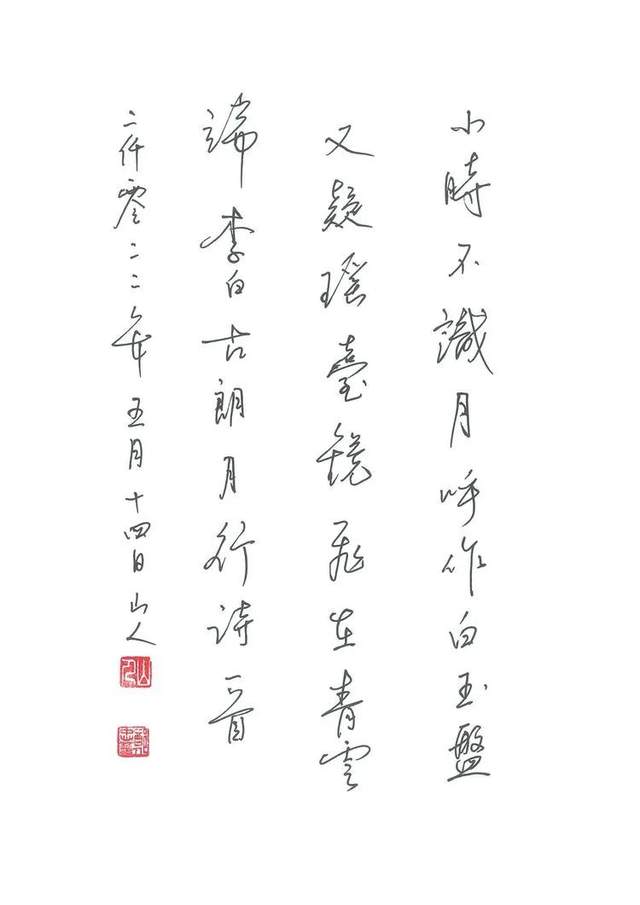 小時不識月呼作白玉盤
又疑瑤臺鏡飛在青雲
端李白古朗月行詩一首
二仟零二二年五月十四日山人